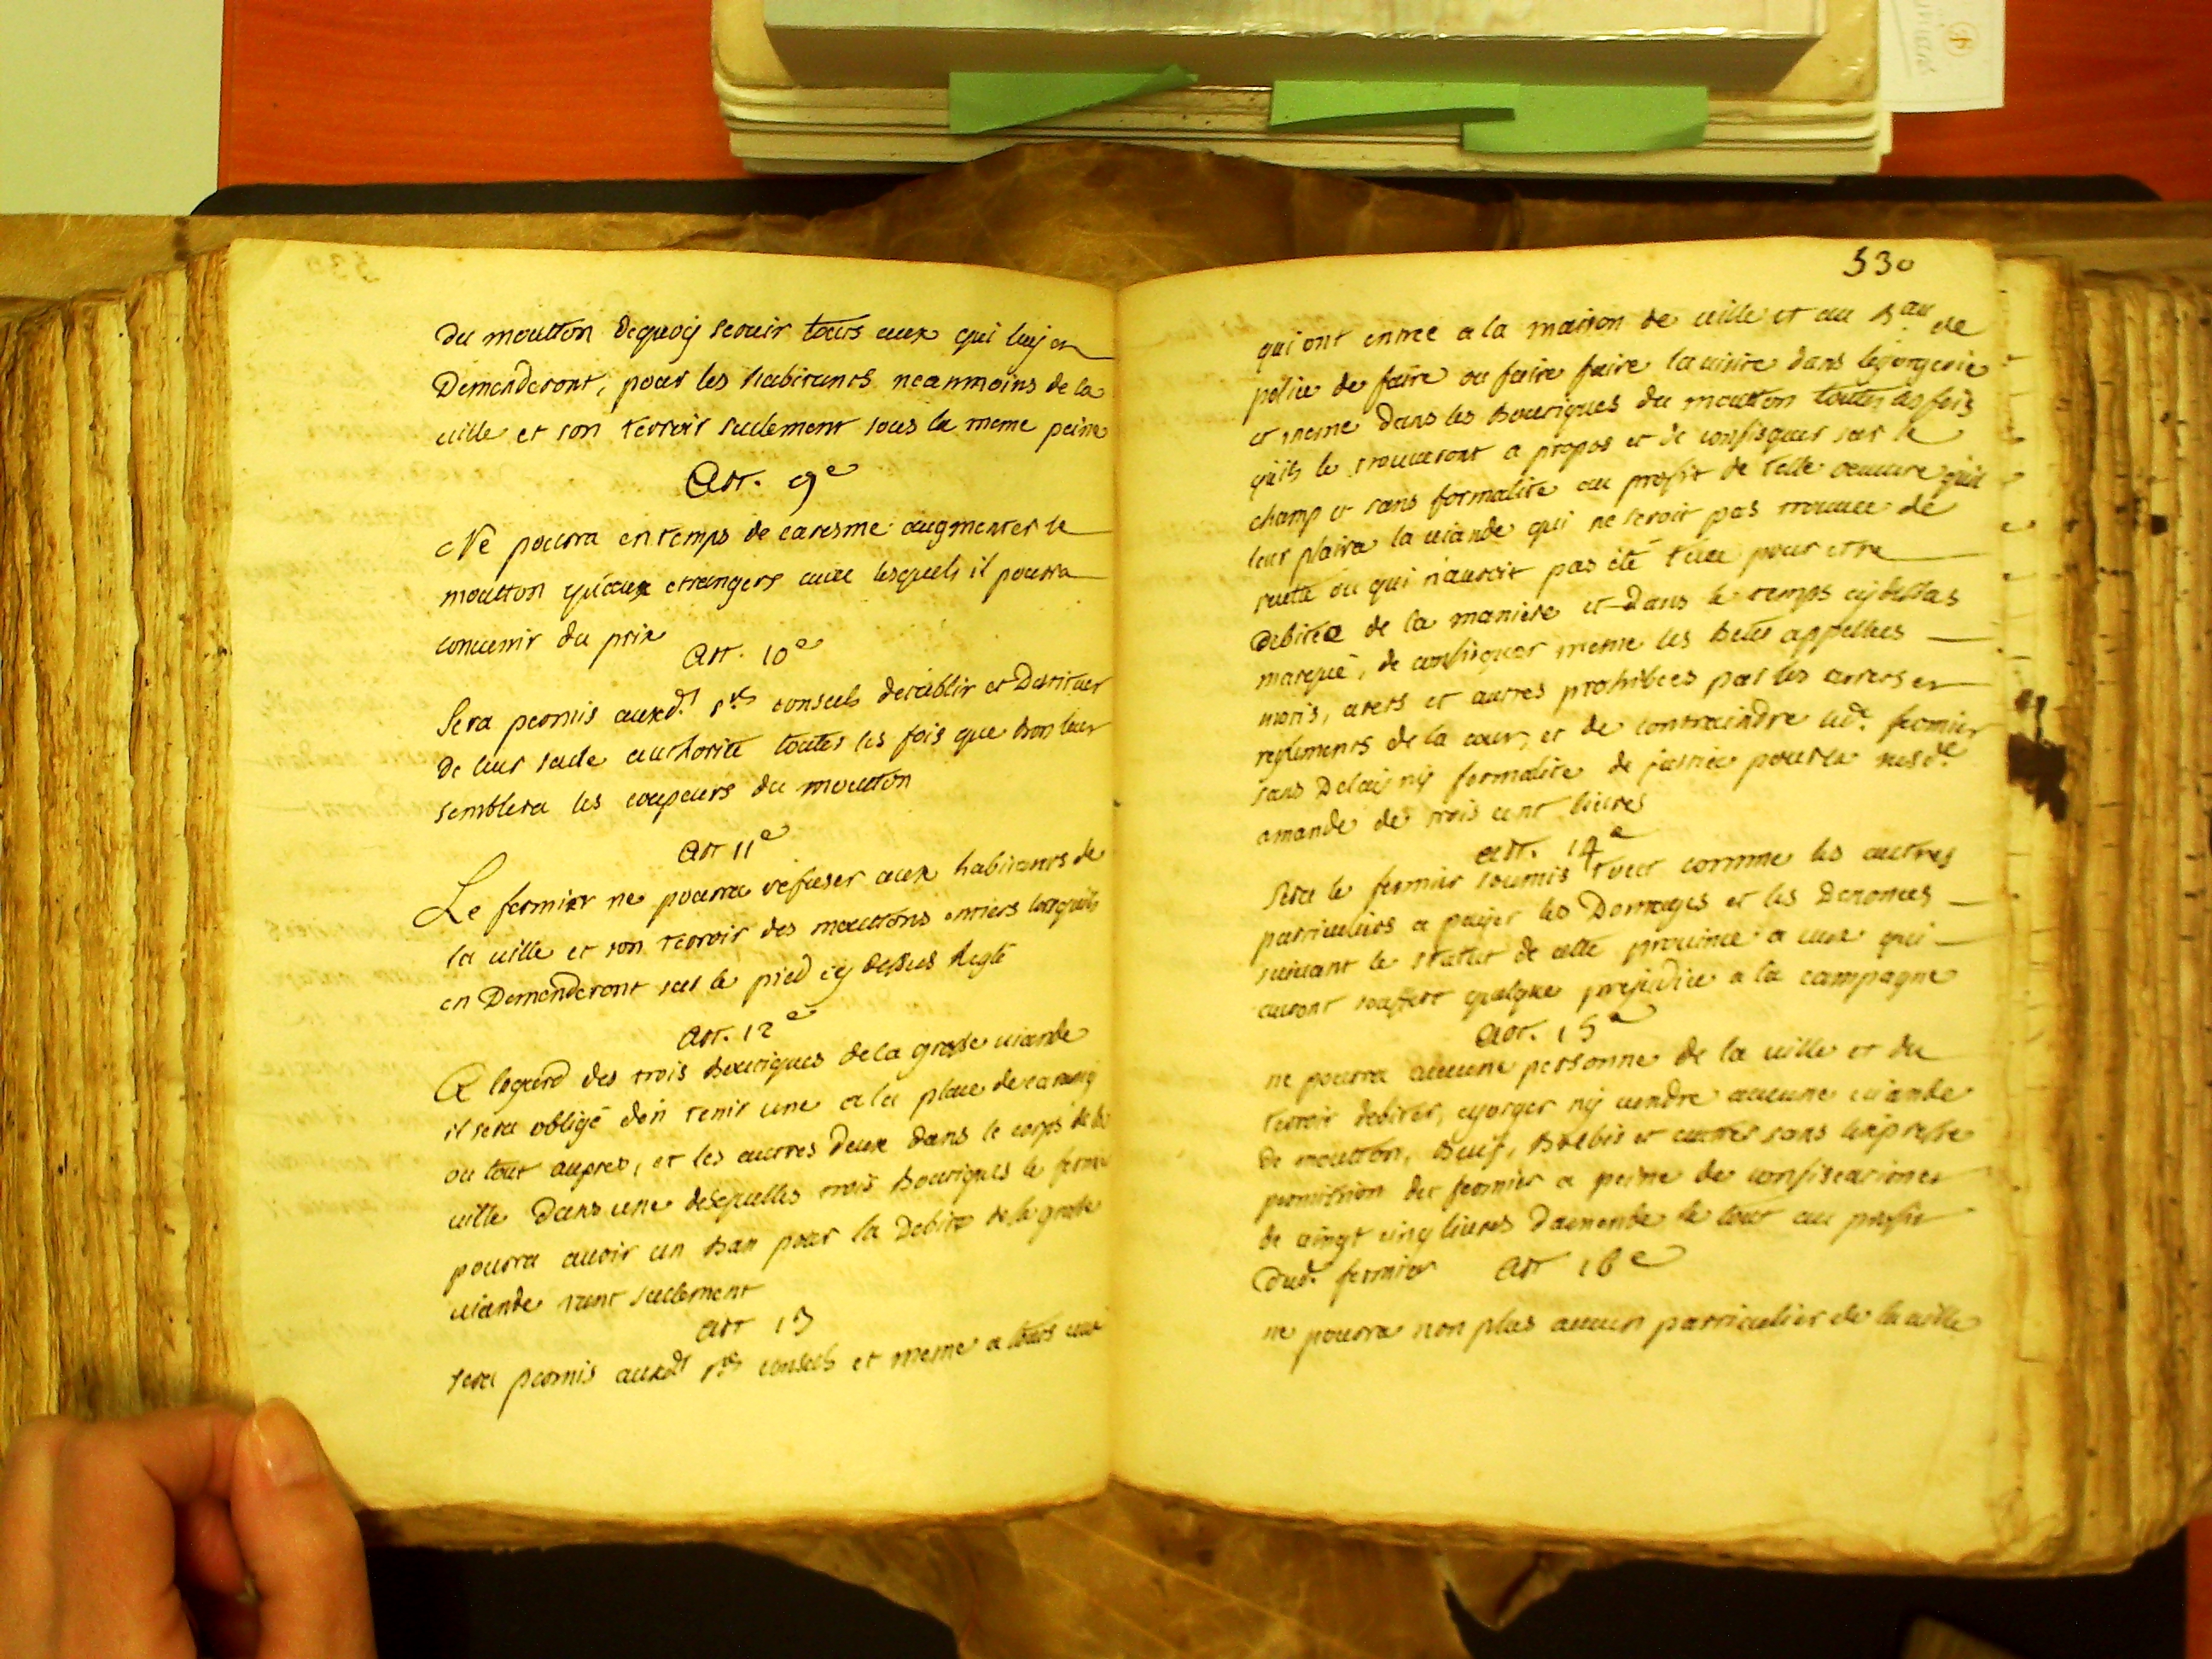 du moutton dequoy seruir touts ceux qui luy en
Demanderont, pour les habitants neanmoins de la
uille et son terroir seulement sous la meme peine
Art. 9e
Ne pourra en temps de caresme augmenter le
moutton qu'aux etrangers auec lesquels il pourra
conuenir du prix
Art. 10e
Sera permis auxd.ts s.rs consuls d'etablir et Destituer
De leur seule authorité toutes les fois que bon leur
semblera les coupeurs du moutton
Art 11e
Le fermier ne pourra refuser aux habitants de
la uille et son terroir des mouttons entiers lorsquils
en Demanderont sur le pied cy dessus Reglé
Art. 12e
A l'egard des trois boutiques de la grosse uiande
il sera obligé d'en tenir une a la place de
ou tout aupres, et les autres Deux dans le corps de la
uille Dans une desquelles trois boutiques le fermier
pourra auoir un ban pour la Debite de la grosse
uiande tant seulement
Art 13
sera permis auxd.ts s.rs consuls et meme a touts ceux
530
qui ont entrée a la maison de uille et au B.au de
police de faire ou faire faire la uisite dans l'egorgerie
et meme dans les boutiques du moutton toutes les fois
qu'ils le trouueront a propos et de confisquer sur le
champ et sans formalité au profit de telle oeuure qu'il
leur plaira la uiande qui ne seroit pas trouuée de
qui n'auroit pas été tuée pour etre
Debitée de la maniere et Dans le temps cy dessus
marqué, de confisquer meme les betes appellées
et autres prohibées par les arrets et
reglements de la cour, et de contraindre led. fermier
sans Delay ny formalité de justice pour
amande de trois cent liures
Art. 14e
sera le fermier soumis tout comme les autres
particuliers a payer les Domages et les Denonces
suiuant le statut de cette prouince a ceux qui
auront souffert quelque prejudice a la campagne
Art. 15e
ne pourra aucune personne de la uille et du
terroir debiter, egorger ny uendre aucune uiande
de moutton, beuf, brebis et autres sans l'expresse
permission du fermier a peine de confiscation et
de uingt cinq liures d'amende le tout au profit
dud. fermier Art 16e
ne pourra non plus aucun particulier de la uille